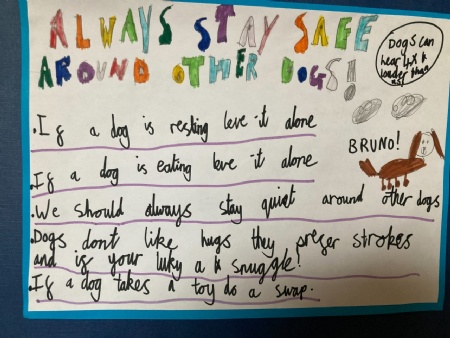 ALWAYS STAY SAFE
AROUND OTHER DOGS!
Dogs can
hear 4x
louder than
us!
.If a dog is resting leve it alone
BRUNO!
.If a dog is eating leve it alone
.We should always stay quiet around other dogs
.Dogs dont like hugs they prefer strokes
and if your luky a snuggle!
.If a dog takes a toy do a swap.